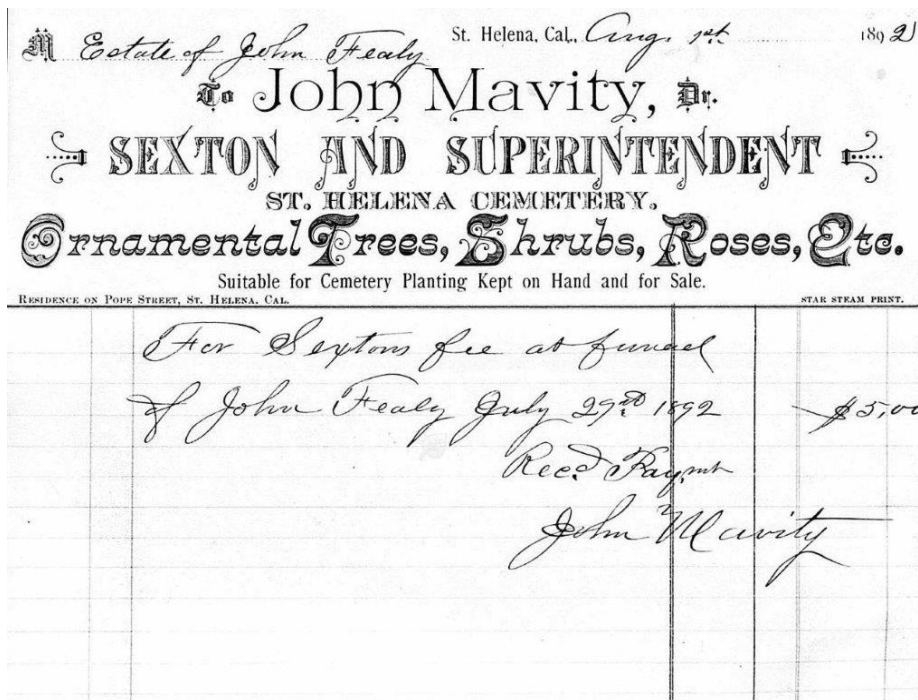 St. Helena, Cal., Aug. 1st 1892
M Estate of John Fealy
To John Mavity, Dr.
SEXTON AND SUPERINTENDENT
ST. HELENA CEMETERY.
Ornamental Trees, Shrubs, Roses, Etc.
Suitable for Cemetery Planting Kept on Hand and for Sale.
RESIDENCE ON POPE STREET, ST. HELENA, CAL. STAR STEAM PRINT.
For Sextons fee at funeral
of John Fealy July 29th 1892 $5,00
Recd Paymt
John Mavity